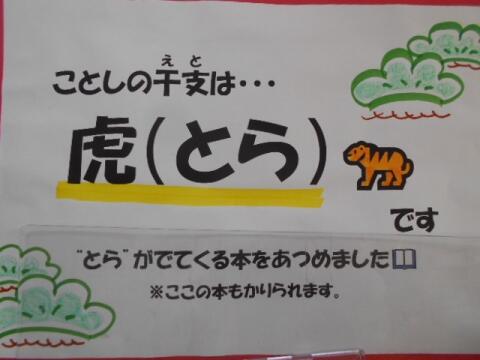 ことしの干支は・・・
えと
虎(とら)
です
"とら"がでてくる本をあつめました
※ここの本もかりられます。